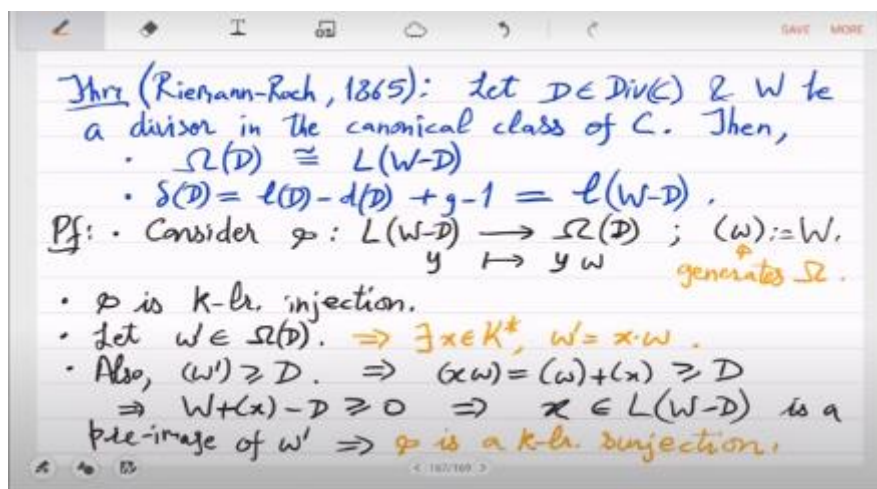 SAVE MORE
Thm (Riemann-Roch, 1865): Let D ∈ Div(C) & W be
a divisor in the canonical class of C. Then,
· Ω(D) ≅ L(W-D)
· δ(D) = l(D) - d(D) + g - 1 = l(W-D).
Pf: · Consider φ : L(W-D) → Ω(D) ; (ω) := W.
y ↦ yω generates Ω.
· φ is k-lr. injection.
· Let ω' ∈ Ω(D). ⇒ ∃x ∈ K*, ω' = x·ω.
· Also, (ω') ≥ D. ⇒ (xω) = (ω)+(x) ≥ D
⇒ W+(x)-D ≥ 0 ⇒ x ∈ L(W-D) is a
pre-image of ω' ⇒ φ is a k-lr. surjection.
< 167/169 >